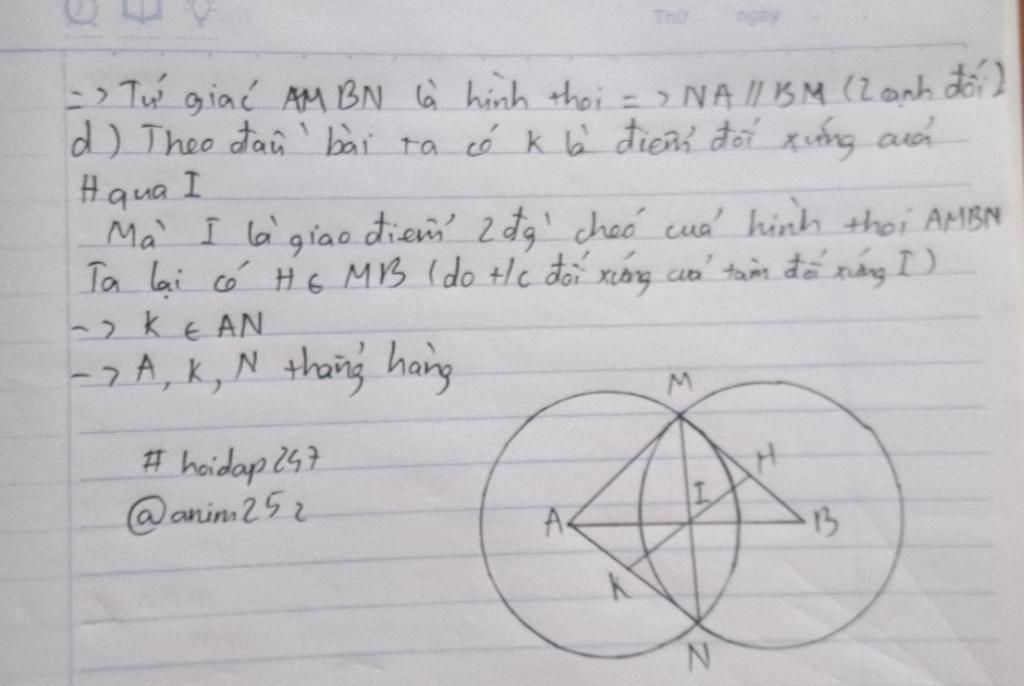 Thứ ngày
=> Tứ giác AMBN là hình thoi => NA // BM (2 cạnh đối)
d) Theo đầu bài ta có K là điểm đối xứng của
H qua I
Mà I là giao điểm 2 đg chéo của hình thoi AMBN
Ta lại có H ∈ MB (do t/c đối xứng của tâm đối xứng I)
-> K ∈ AN
-> A, K, N thẳng hàng
# hoidap247
@anim252
M
H
I
A
B
K
N